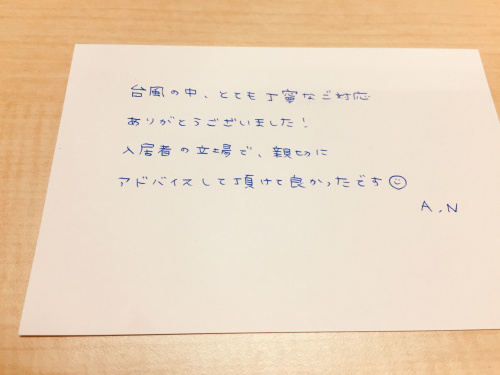 台風の中、とても丁寧なご対応
ありがとうございました!
入居者の立場で、親切に
アドバイスして頂けて良かったです☺
A.N